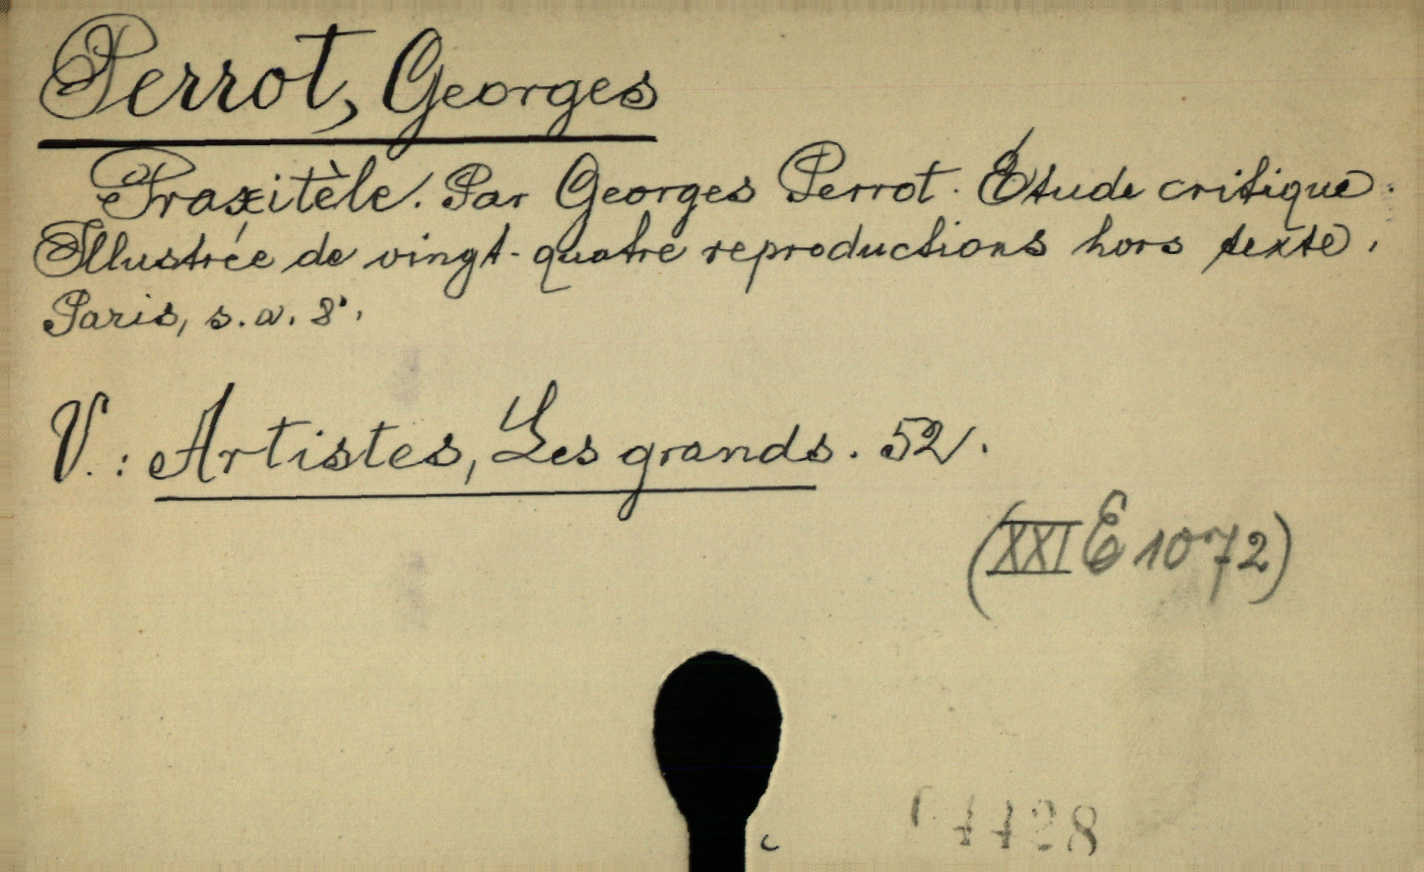 Perrot, Georges
Praxitèle. Par Georges Perrot. Étude critique.
Illustrée de vingt-quatre reproductions hors texte.
Paris, s.a. 8°.
V.: Artistes, Les grands. 52.
(XXI E 1072)